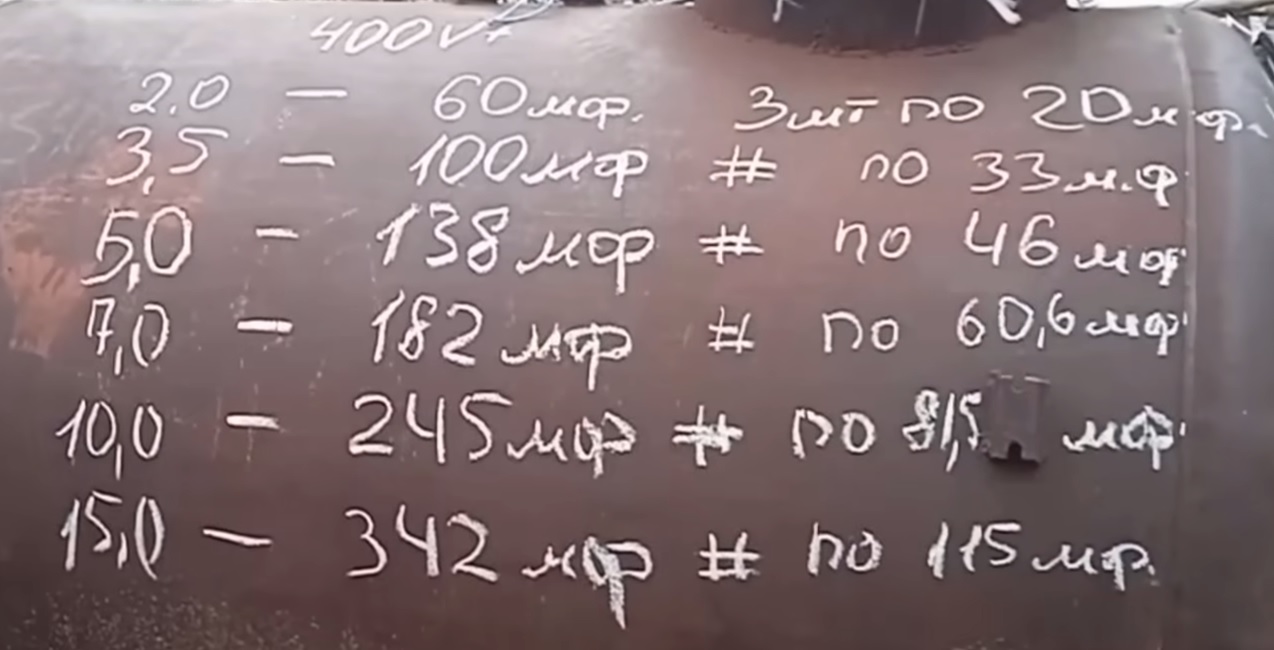 400V
2.0 — 60мф. 3шт по 20мф.
3,5 — 100мф # по 33м.ф
5,0 - 138мф # по 46мф
7,0 - 182мф # по 60,6мф
10,0 - 245мф # по 81,5 мф
15,0 — 342мф # по 115мф.